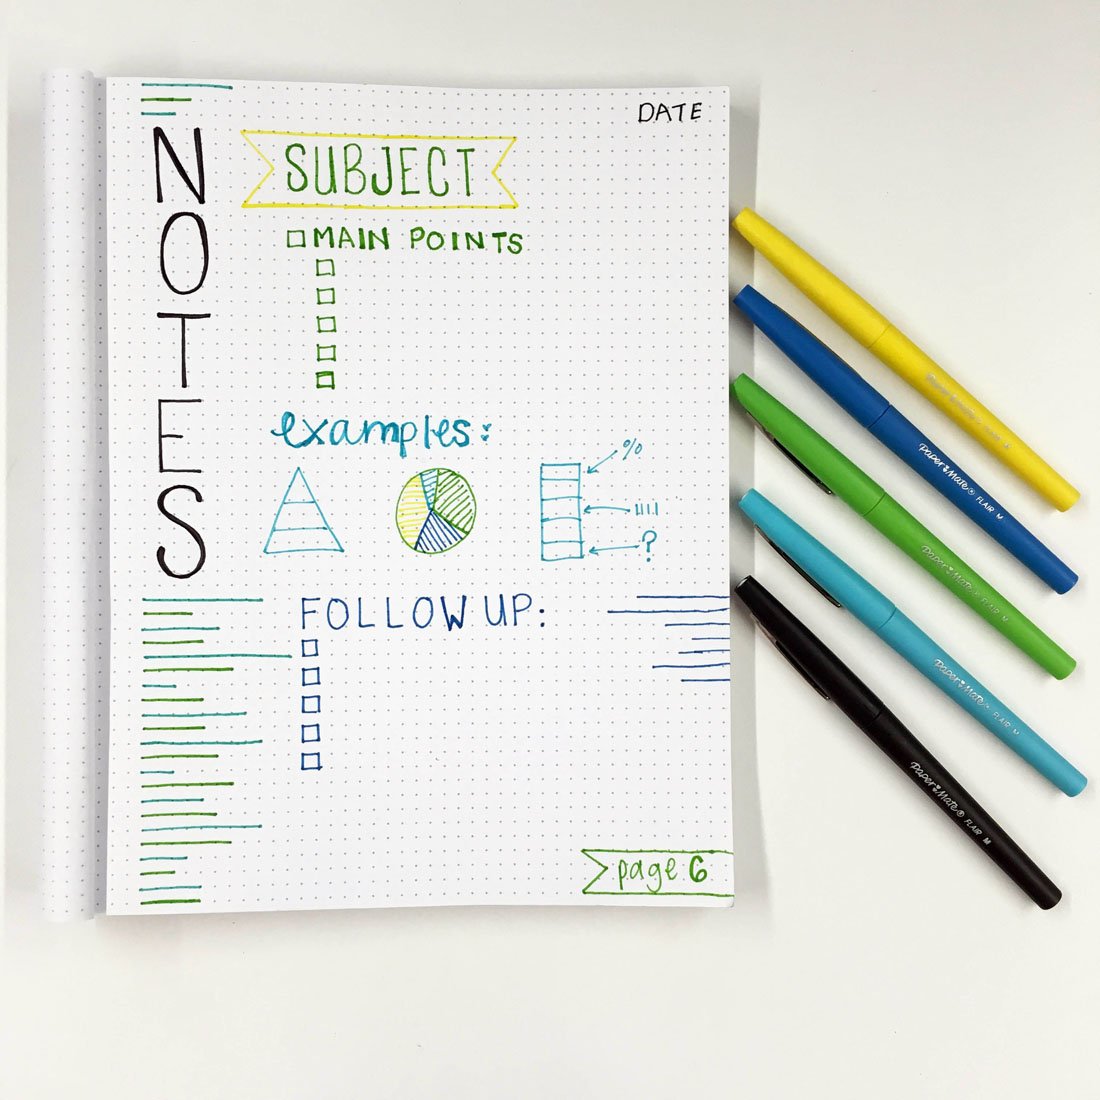 DATE
NOTES
SUBJECT
MAIN POINTS
examples:
%
?
FOLLOW UP:
page 6
Paper Mate® FLAIR M
Paper Mate® FLAIR M
Paper Mate® FLAIR M
Paper Mate® FLAIR M